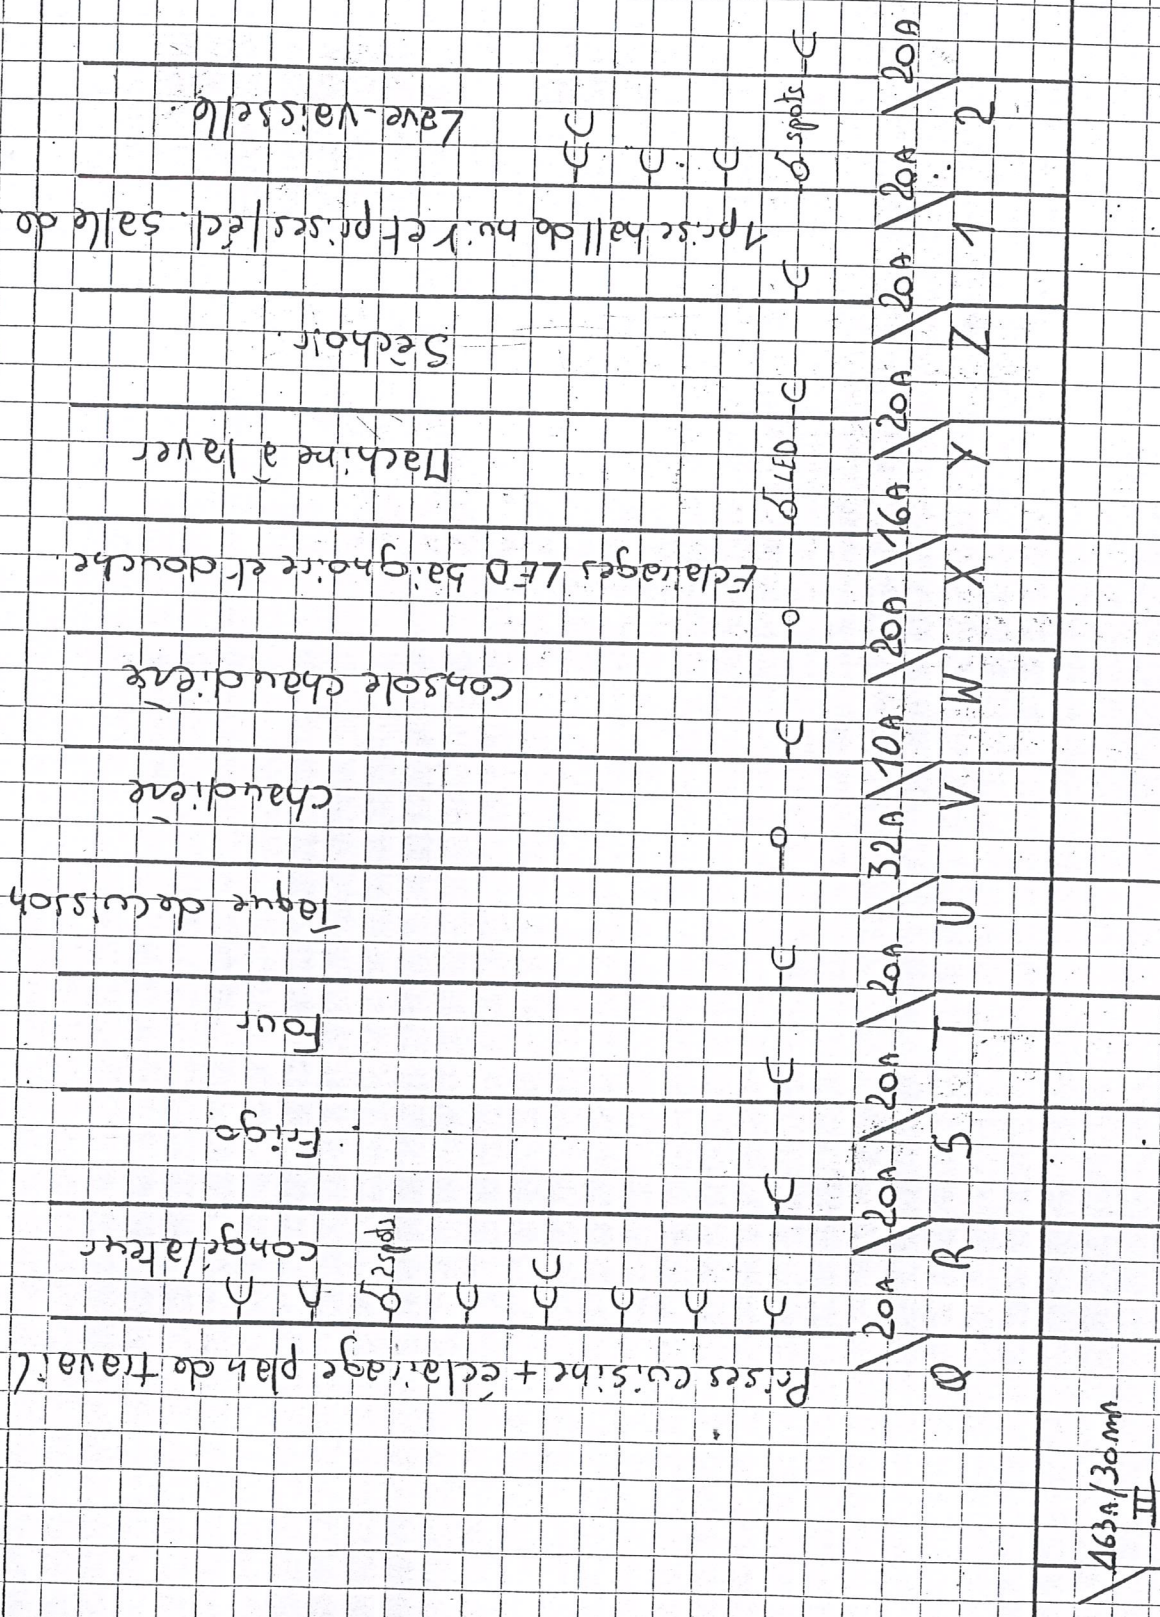 Δ63A/30mA
II
Q
20A
Prises cuisine + éclairage plan de travail
2 spots
R
20A
congélateur
S
20A
Frigo
T
20A
Four
U
32A
Taque de cuisson
V
10A
chaudière
W
20A
console chaudière
X
16A
LED
Eclairages LED baignoire et douche.
Y
20A
Machine à laver
Z
20A
Séchoir.
1
20A
spots
1 prise hall de nuit et prises/écl. salle de
2
20A
Lave-vaisselle.